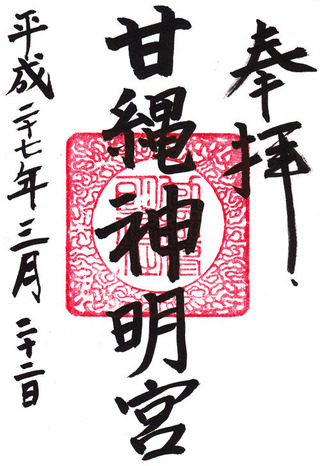 奉拝
甘縄神明宮
平成二十七年三月二十二日